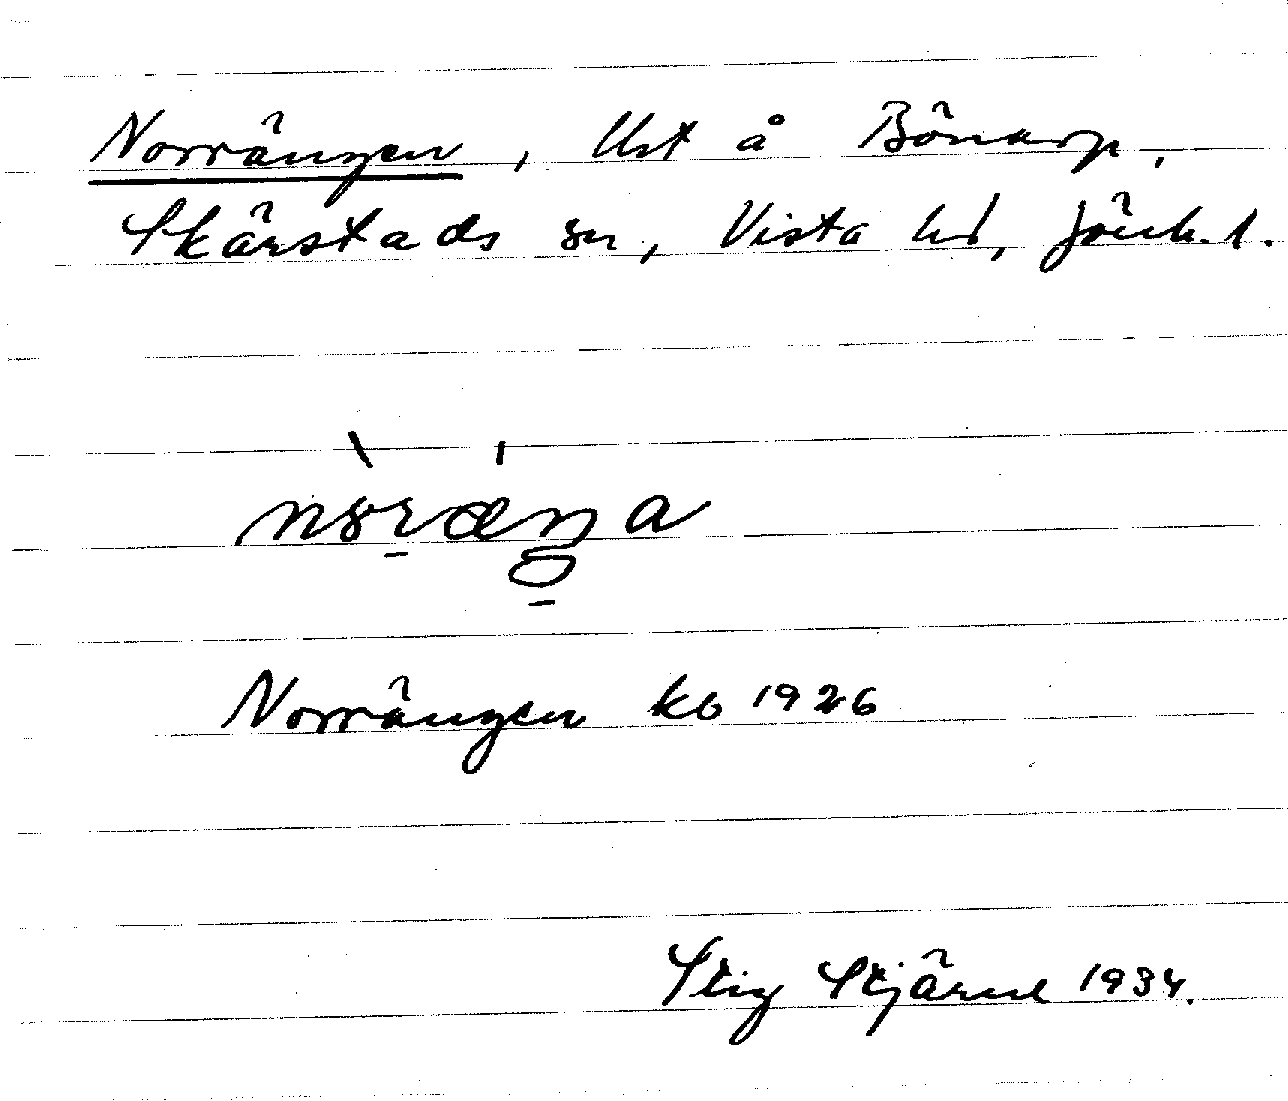 Norrängen, Ust å Bönarp,
Skärstads sn, Vista hd, Jönk. l.
Norrängen kb 1926
Stig Stjärne 1934.